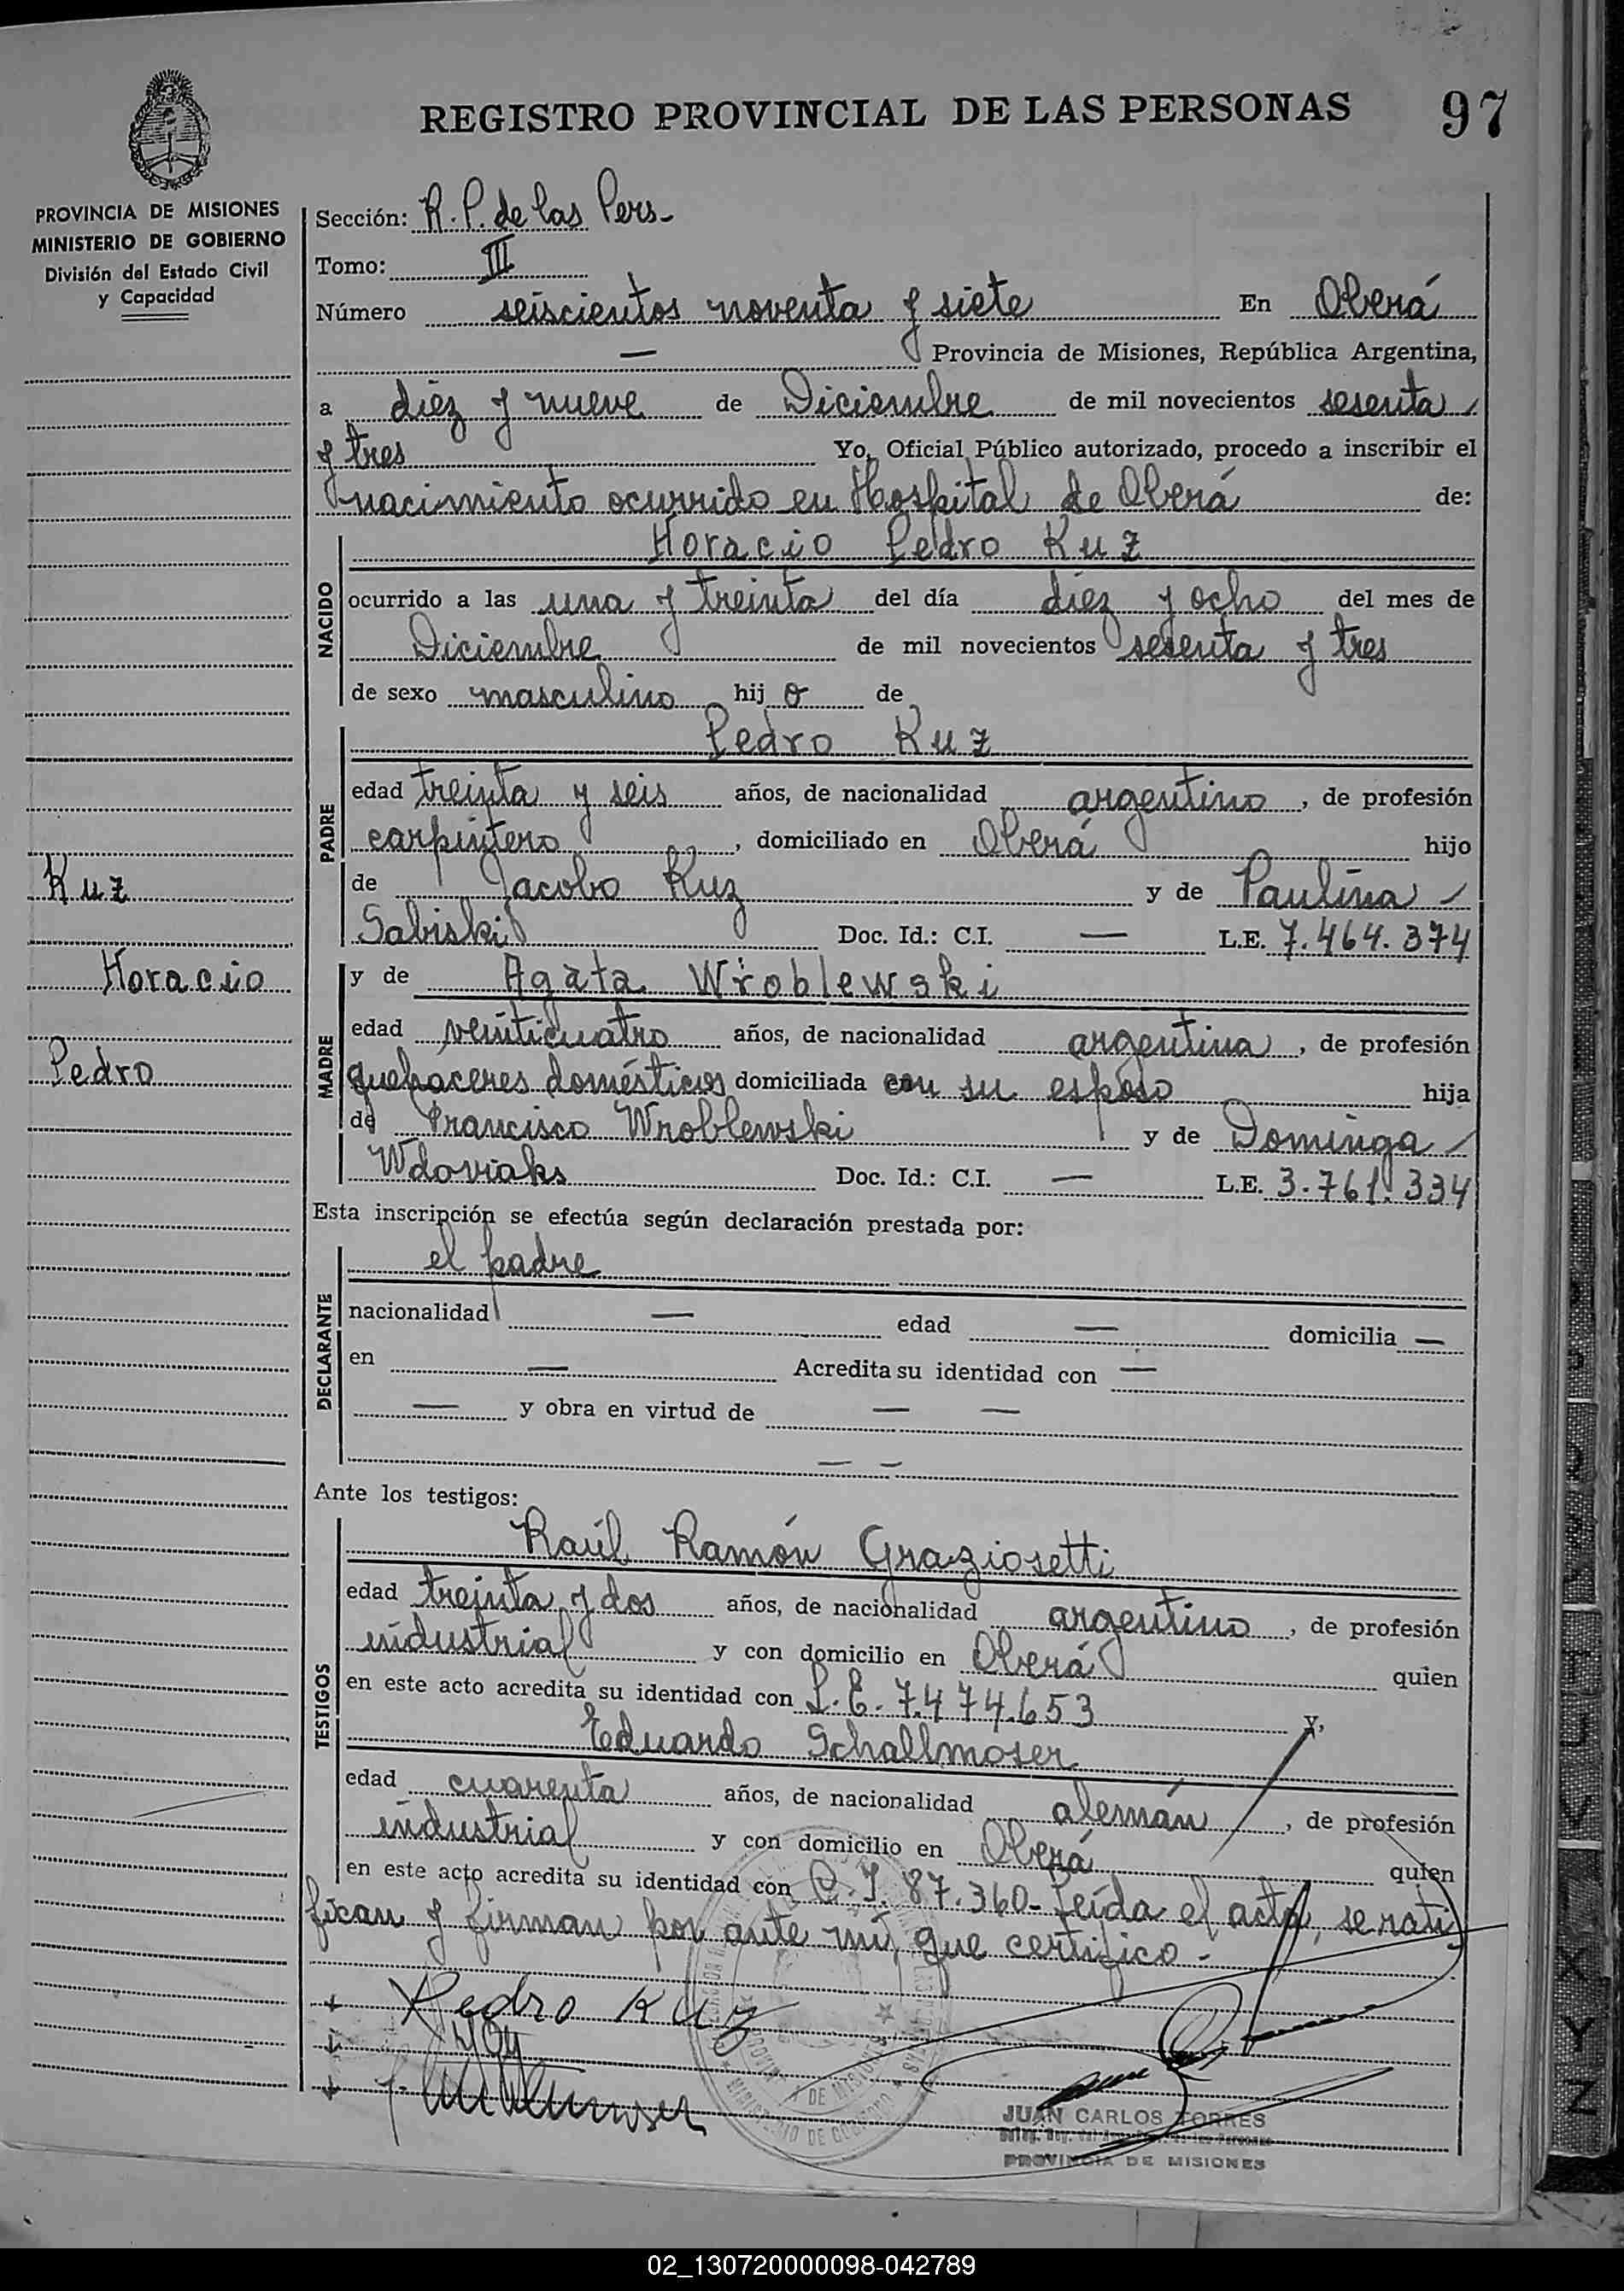 REGISTRO PROVINCIAL DE LAS PERSONAS 97
PROVINCIA DE MISIONES
MINISTERIO DE GOBIERNO
División del Estado Civil
y Capacidad
Kuz
Horacio
Pedro
Sección: R. P. de las Pers-
Tomo: III
Número seiscientos noventa y siete En Oberá
— Provincia de Misiones, República Argentina,
a diez y nueve de Diciembre de mil novecientos sesenta
y tres Yo, Oficial Público autorizado, procedo a inscribir el
nacimiento ocurrido en Hospital de Oberá de:
NACIDO
Horacio Pedro Kuz
ocurrido a las una y treinta del día diez y ocho del mes de
Diciembre de mil novecientos sesenta y tres
de sexo masculino hij o de
PADRE
Pedro Kuz
edad treinta y seis años, de nacionalidad argentino, de profesión
carpintero, domiciliado en Oberá hijo
de Jacobo Kuz y de Paulina
Sabiski Doc. Id.: C.I. — L.E. 7.464.374
MADRE
y de Agata Wroblewski
edad veinticuatro años, de nacionalidad argentina, de profesión
quehaceres domésticos domiciliada con su esposo hija
de Francisco Wroblewski y de Dominga
Wdoviaks Doc. Id.: C.I. — L.E. 3.761.334
Esta inscripción se efectúa según declaración prestada por:
DECLARANTE
el padre
nacionalidad — edad — domicilia —
en — Acredita su identidad con —
— y obra en virtud de — —
— —
Ante los testigos:
TESTIGOS
Raúl Ramón Graziosetti
edad treinta y dos años, de nacionalidad argentino, de profesión
industrial y con domicilio en Oberá quien
en este acto acredita su identidad con L.E. 7.474.653 y,
Eduardo Schallmoser
edad cuarenta años, de nacionalidad alemán, de profesión
industrial y con domicilio en Oberá quien
en este acto acredita su identidad con C.I. 87.360- Leída el acta, se rati
fican y firman por ante mí, que certifico.-
Pedro Kuz
JUAN CARLOS TORRES
PROVINCIA DE MISIONES
X
Y
Z
02_130720000098-042789